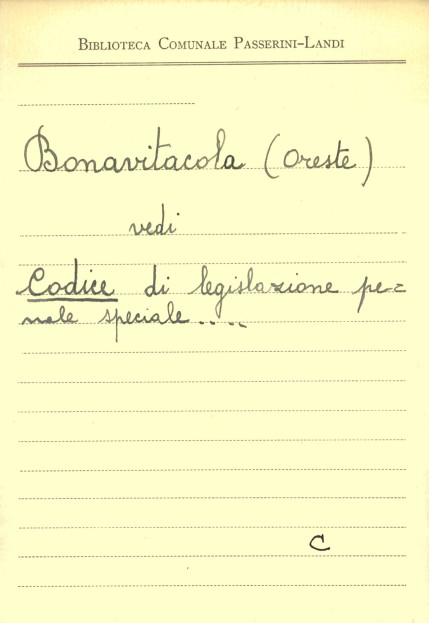 Biblioteca Comunale Passerini-Landi
Bonavitacola (Oreste)
vedi
Codice di legislazione pe=
nale speciale.....
C